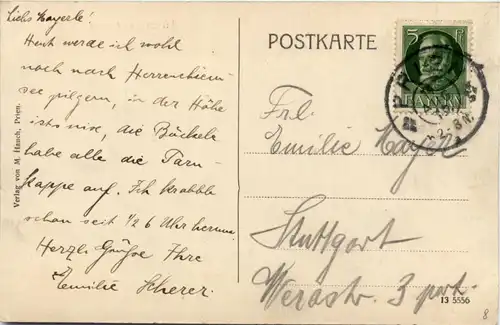 Liebs Mayerle!
Heut werde ich wohl
noch nach Herrenchiem-
see pilgern, in der Höhe
ists nix, die Buckel
habe alle die Tarn-
kappe auf. Ich krabble
schon seit 1/2 6 Uhr herum.
Herzl. Grüße Ihre
Emilie Scherer.
Verlag von M. Hauch, Prien.
POSTKARTE
5 Pf
BAYERN
Frl.
Emilie Mayer
Stuttgart
Werastr. 3 part.
13 5556
8